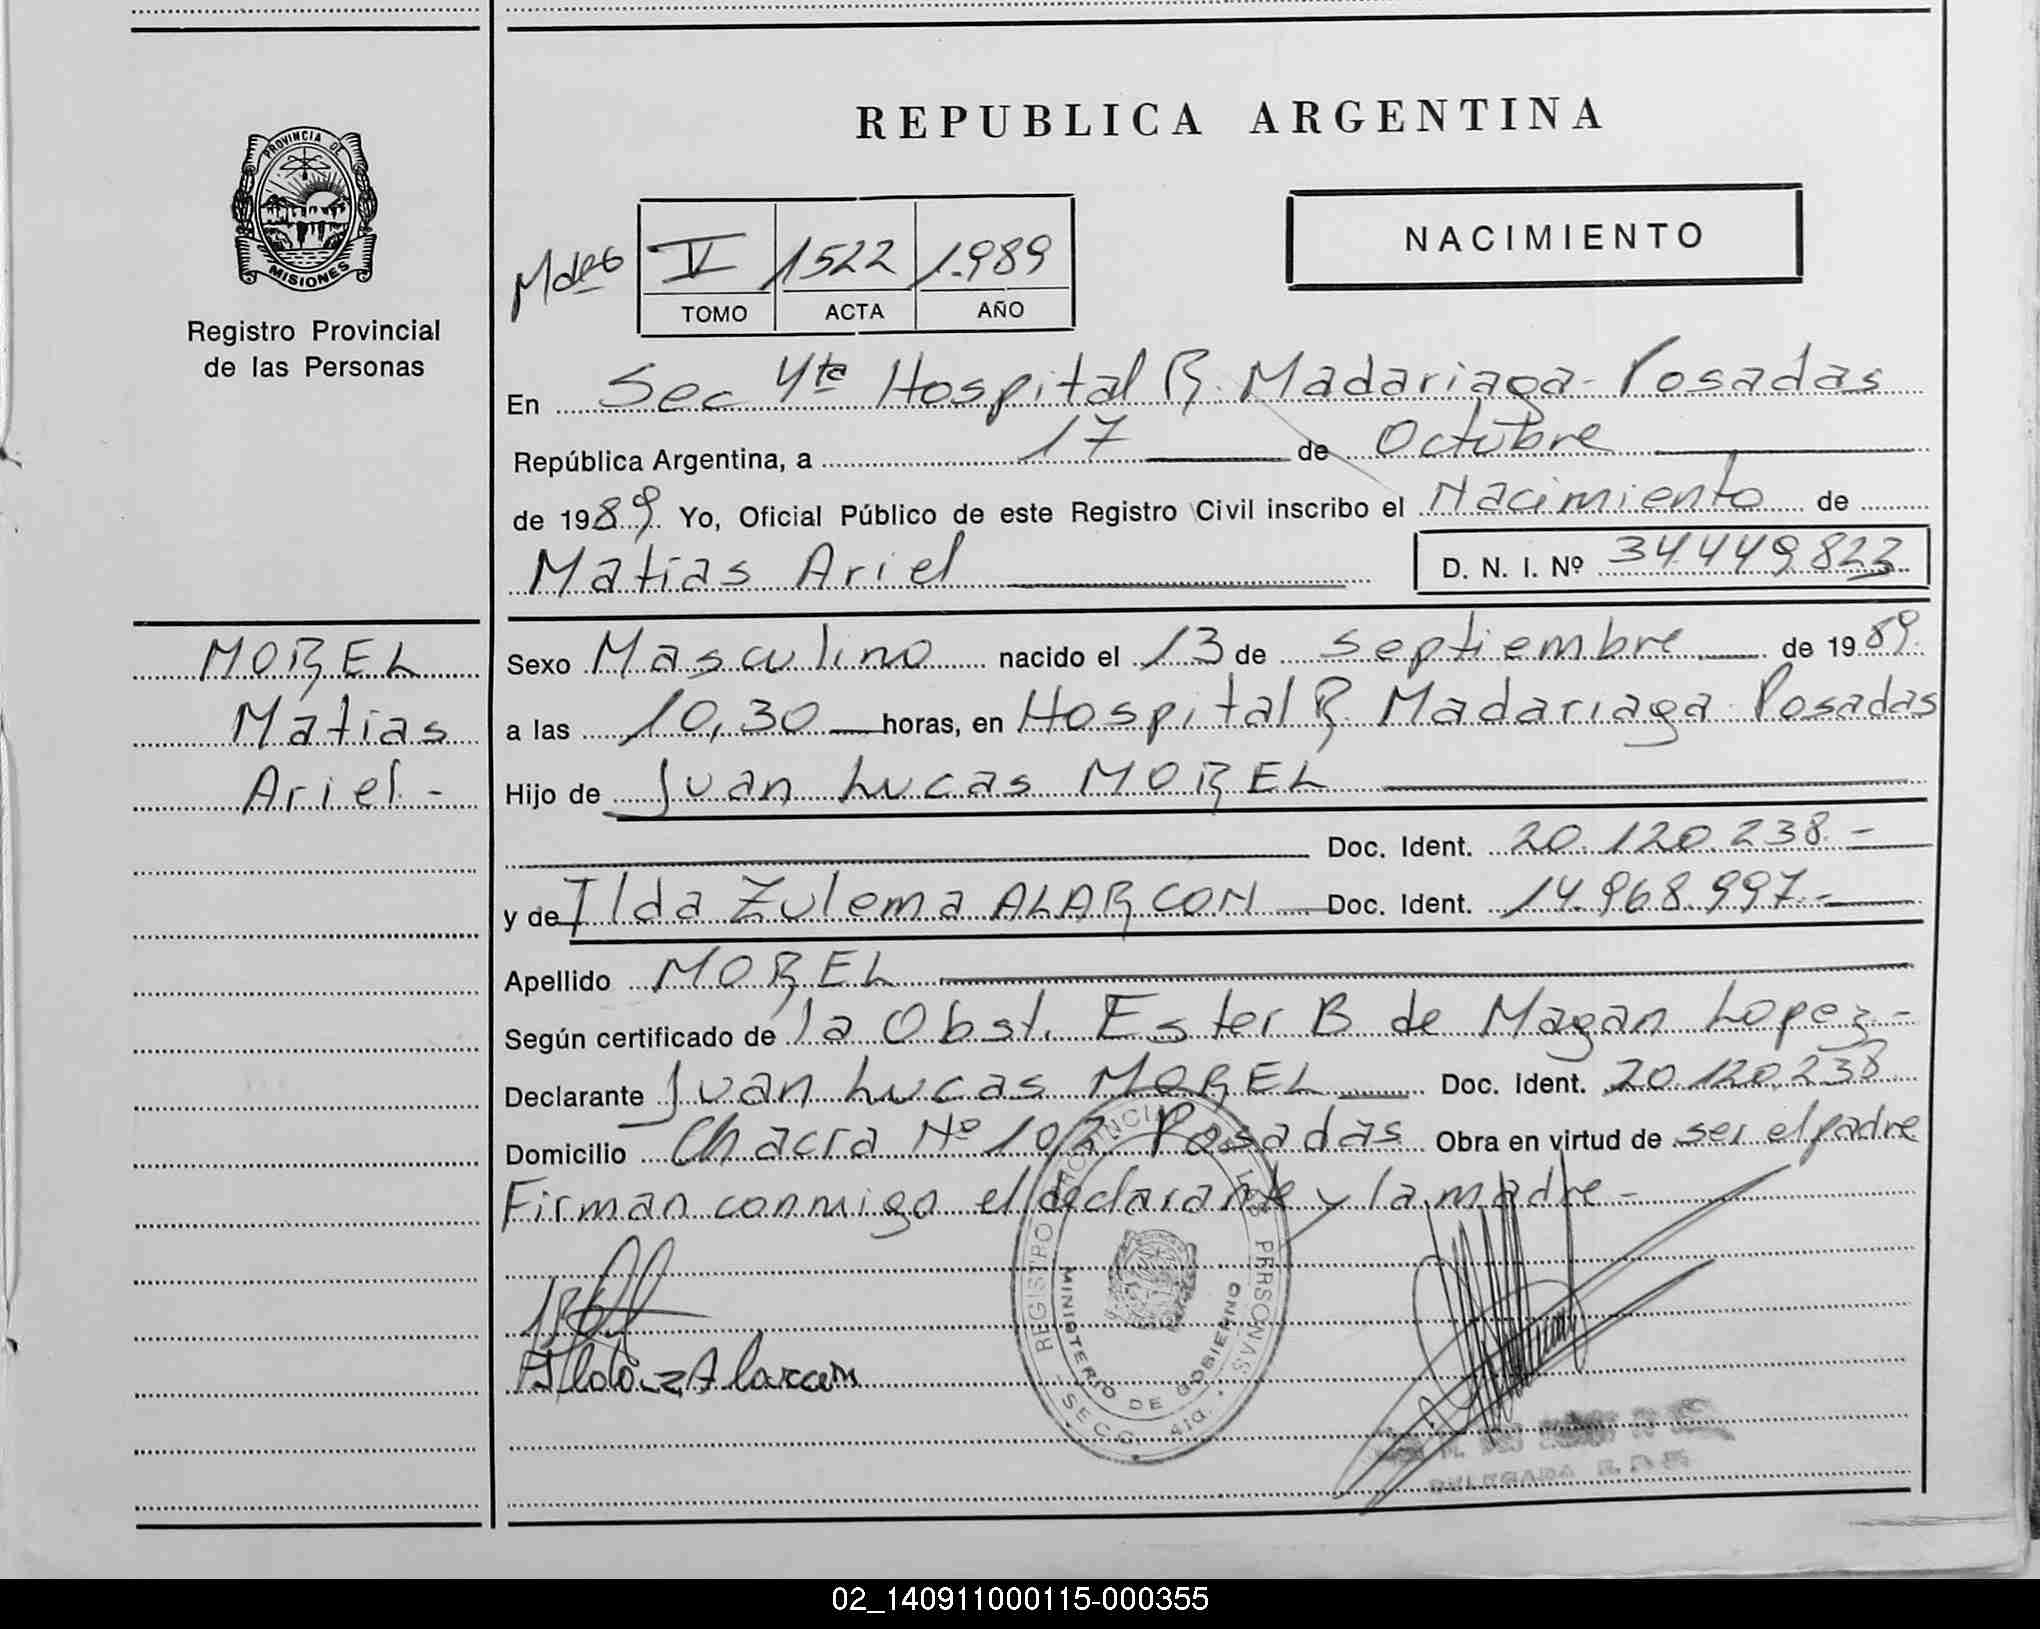 REPUBLICA ARGENTINA
PROVINCIA DE
MISIONES
Registro Provincial
de las Personas
NACIMIENTO
V 1522 1.989
TOMO ACTA AÑO
En Sec 4ta Hospital R. Madariaga - Posadas
República Argentina, a 17 de Octubre
de 1989. Yo, Oficial Público de este Registro Civil inscribo el Nacimiento de
Matias Ariel D. N. I. Nº 34449.823
MOREL
Matias
Ariel -
Sexo Masculino nacido el 13 de septiembre de 1989.
a las 10,30 horas, en Hospital R. Madariaga - Posadas
Hijo de Juan Lucas MOREL
Doc. Ident. 20.120.238.-
y de Ilda Zulema ALARCON Doc. Ident. 14.968.997.-
Apellido MOREL
Según certificado de la Obst. Ester B de Magan Lopez -
Declarante Juan Lucas MOREL Doc. Ident. 20.120.238
Domicilio Chacra Nº 102 Posadas Obra en virtud de ser el padre
Firman conmigo el declarante y la madre -
REGISTRO PROVINCIAL DE LAS PERSONAS
MINISTERIO DE GOBIERNO
SECC. 4ta.
Alarcon
DELEGADA
02_140911000115-000355